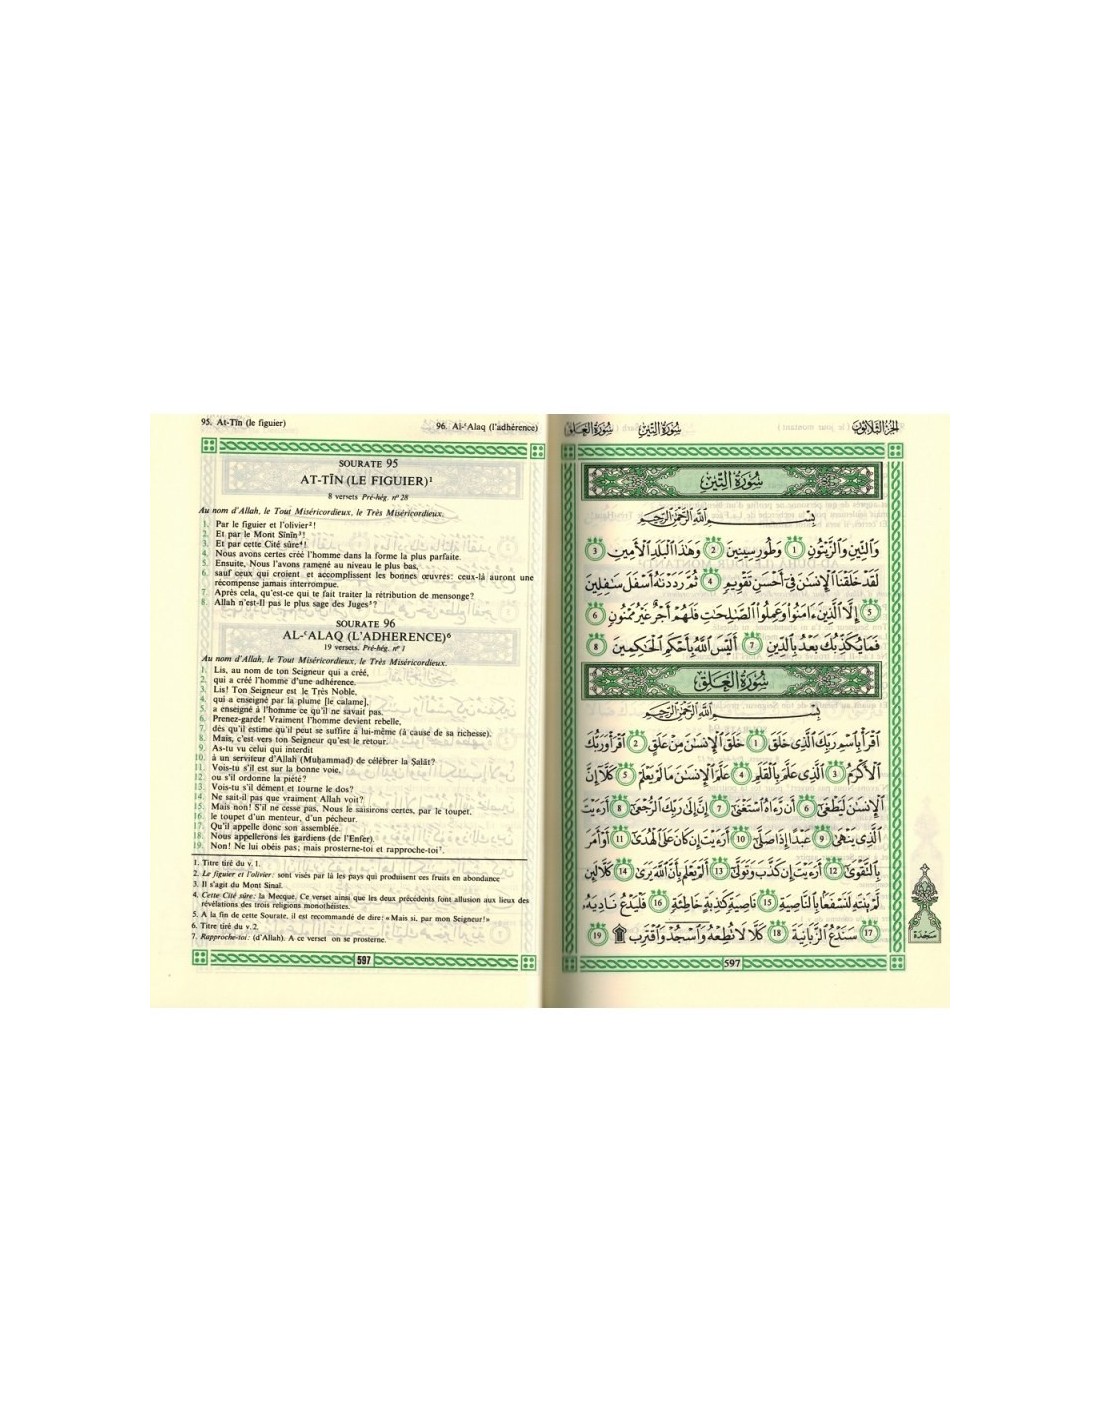 95. At-Tīn (le figuier)
96. Al-ʿAlaq (l'adhérence)
SOURATE 95
AT-TĪN (LE FIGUIER)¹
8 versets Pré-hég. n° 28
Au nom d'Allah, le Tout Miséricordieux, le Très Miséricordieux.
1. Par le figuier et l'olivier²!
2. Et par le Mont Sīnīn³!
3. Et par cette Cité sûre⁴!
4. Nous avons certes créé l'homme dans la forme la plus parfaite.
5. Ensuite, Nous l'avons ramené au niveau le plus bas,
6. sauf ceux qui croient et accomplissent les bonnes œuvres: ceux-là auront une
récompense jamais interrompue.
7. Après cela, qu'est-ce qui te fait traiter la rétribution de mensonge?
8. Allah n'est-Il pas le plus sage des Juges⁵?
SOURATE 96
AL-ʿALAQ (L'ADHERENCE)⁶
19 versets. Pré-hég. n° 1
Au nom d'Allah, le Tout Miséricordieux, le Très Miséricordieux.
1. Lis, au nom de ton Seigneur qui a créé,
2. qui a créé l'homme d'une adhérence.
3. Lis! Ton Seigneur est le Très Noble,
4. qui a enseigné par la plume [le calame],
5. a enseigné à l'homme ce qu'il ne savait pas.
6. Prenez-garde! Vraiment l'homme devient rebelle,
7. dès qu'il estime qu'il peut se suffire à lui-même (à cause de sa richesse).
8. Mais, c'est vers ton Seigneur qu'est le retour.
9. As-tu vu celui qui interdit
10. à un serviteur d'Allah (Muḥammad) de célébrer la Ṣalāt?
11. Vois-tu s'il est sur la bonne voie,
12. ou s'il ordonne la piété?
13. Vois-tu s'il dément et tourne le dos?
14. Ne sait-il pas que vraiment Allah voit?
15. Mais non! S'il ne cesse pas, Nous le saisirons certes, par le toupet,
16. le toupet d'un menteur, d'un pécheur.
17. Qu'il appelle donc son assemblée.
18. Nous appellerons les gardiens (de l'Enfer).
19. Non! Ne lui obéis pas; mais prosterne-toi et rapproche-toi⁷.
1. Titre tiré du v. 1.
2. Le figuier et l'olivier: sont visés par là les pays qui produisent ces fruits en abondance
3. Il s'agit du Mont Sinaï.
4. Cette Cité sûre: la Mecque. Ce verset ainsi que les deux précédents font allusion aux lieux des
révélations des trois religions monothéistes.
5. A la fin de cette Sourate, il est recommandé de dire: «Mais si, par mon Seigneur!»
6. Titre tiré du v. 2.
7. Rapproche-toi: (d'Allah). A ce verset on se prosterne.
597
الجزء الثلاثون
سورة التين
سورة العلق
سُورَةُ التِّينِ
بِسْمِ ٱللَّهِ ٱلرَّحْمَٰنِ ٱلرَّحِيمِ
وَٱلتِّينِ وَٱلزَّيْتُونِ 1 وَطُورِ سِينِينَ 2 وَهَٰذَا ٱلْبَلَدِ ٱلْأَمِينِ 3
لَقَدْ خَلَقْنَا ٱلْإِنسَٰنَ فِىٓ أَحْسَنِ تَقْوِيمٍ 4 ثُمَّ رَدَدْنَٰهُ أَسْفَلَ سَٰفِلِينَ
5 إِلَّا ٱلَّذِينَ ءَامَنُوا۟ وَعَمِلُوا۟ ٱلصَّٰلِحَٰتِ فَلَهُمْ أَجْرٌ غَيْرُ مَمْنُونٍ 6
فَمَا يُكَذِّبُكَ بَعْدُ بِٱلدِّينِ 7 أَلَيْسَ ٱللَّهُ بِأَحْكَمِ ٱلْحَٰكِمِينَ 8
سُورَةُ العَلَقِ
بِسْمِ ٱللَّهِ ٱلرَّحْمَٰنِ ٱلرَّحِيمِ
ٱقْرَأْ بِٱسْمِ رَبِّكَ ٱلَّذِى خَلَقَ 1 خَلَقَ ٱلْإِنسَٰنَ مِنْ عَلَقٍ 2 ٱقْرَأْ وَرَبُّكَ
ٱلْأَكْرَمُ 3 ٱلَّذِى عَلَّمَ بِٱلْقَلَمِ 4 عَلَّمَ ٱلْإِنسَٰنَ مَا لَمْ يَعْلَمْ 5 كَلَّآ إِنَّ
ٱلْإِنسَٰنَ لَيَطْغَىٰٓ 6 أَن رَّءَاهُ ٱسْتَغْنَىٰٓ 7 إِنَّ إِلَىٰ رَبِّكَ ٱلرُّجْعَىٰٓ 8 أَرَءَيْتَ
ٱلَّذِى يَنْهَىٰ 9 عَبْدًا إِذَا صَلَّىٰٓ 10 أَرَءَيْتَ إِن كَانَ عَلَى ٱلْهُدَىٰٓ 11 أَوْ أَمَرَ
بِٱلتَّقْوَىٰٓ 12 أَرَءَيْتَ إِن كَذَّبَ وَتَوَلَّىٰٓ 13 أَلَمْ يَعْلَم بِأَنَّ ٱللَّهَ يَرَىٰ 14 كَلَّا لَئِن
لَّمْ يَنتَهِ لَنَسْفَعًۢا بِٱلنَّاصِيَةِ 15 نَاصِيَةٍ كَٰذِبَةٍ خَاطِئَةٍ 16 فَلْيَدْعُ نَادِيَهُۥ
17 سَنَدْعُ ٱلزَّبَانِيَةَ 18 كَلَّا لَا تُطِعْهُ وَٱسْجُدْ وَٱقْتَرِب ۩ 19
سجدة
597